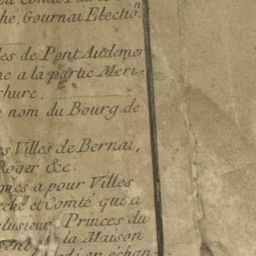 he, Gournai Electio.n
les de Pont Audemer
ne a la partie Meri-
chure.
e nom du Bourg de
es Villes de Bernai,
Roger &c.
mes a pour Villes
rche et Comté qui a
plusieurs Princes du
la Maison
en echan-